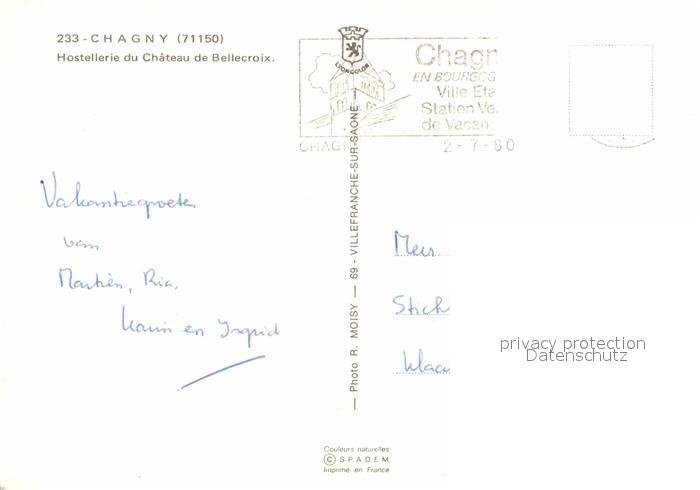 233 - CHAGNY (71150)
Hostellerie du Château de Bellecroix.
LYONCOLOR
Chagn
EN BOURGOG
Ville Eta
Station Ve
de Vacan
CHAGN
2-7-80
Vakantiegroeten
van
Martien, Ria,
Karin en Ingrid
— Photo R. MOISY — 69 - VILLEFRANCHE-SUR-SAONE —
Stich
privacy protection
Datenschutz
Couleurs naturelles
© S.P.A.D.E.M.
Imprimé en France